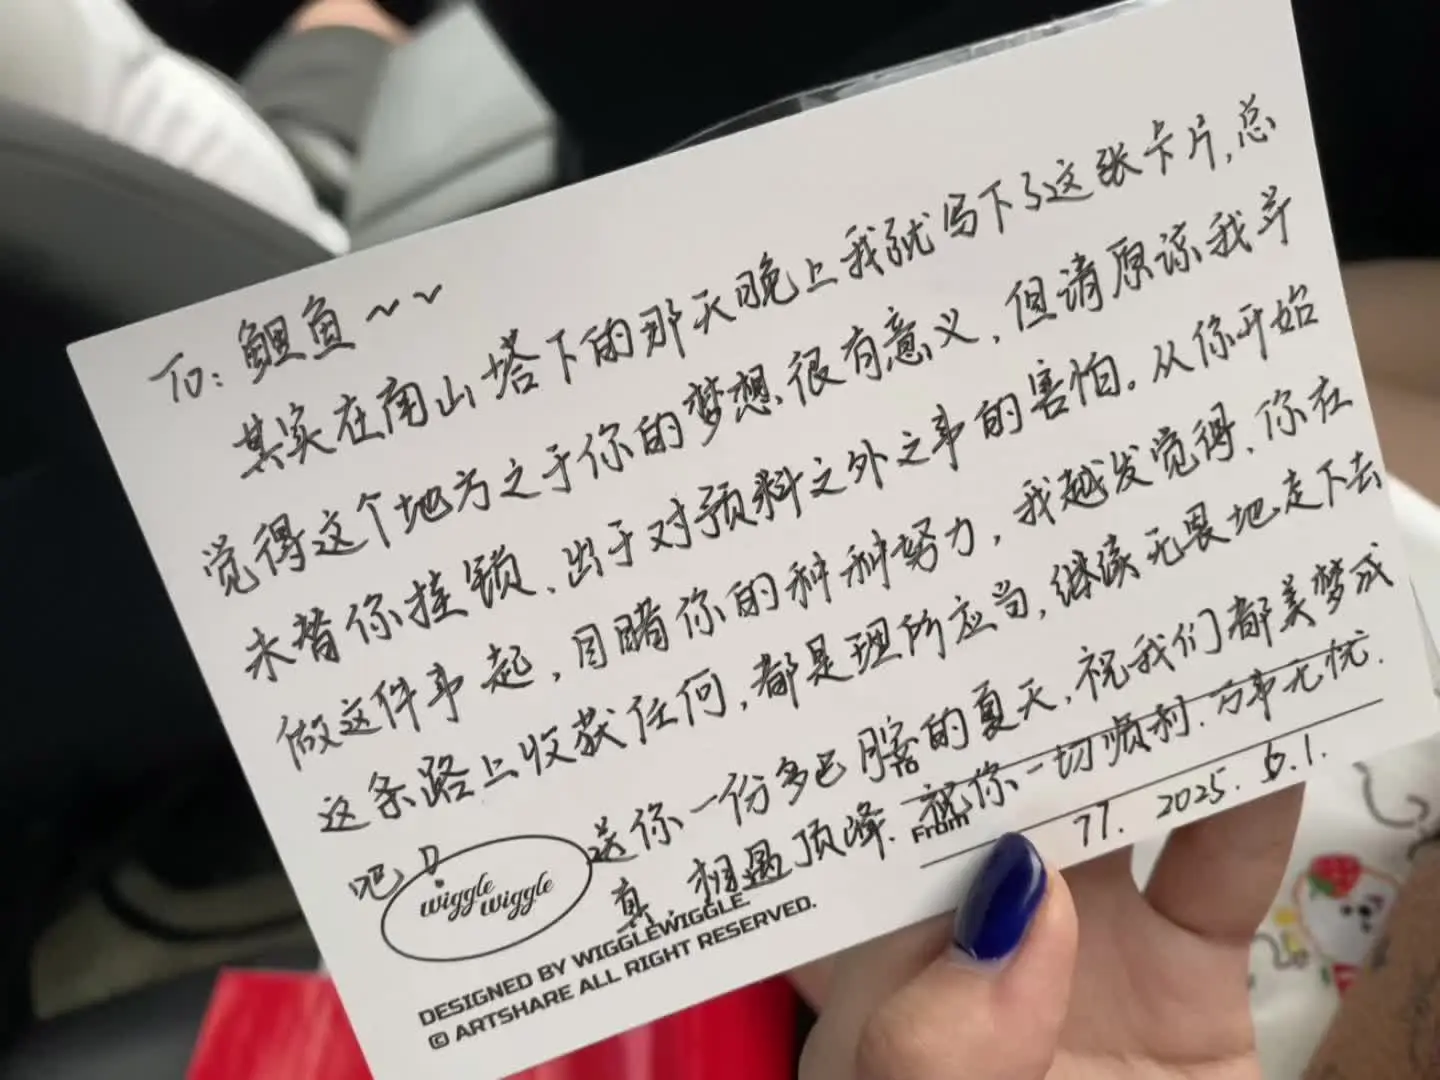 To: 鲲鱼~~
其实在南山塔下的那天晚上我就写下了这张卡片,总
觉得这个地方之于你的梦想、很有意义,但请原谅我并
未替你挂锁、出于对预料之外之事的害怕。从你开始
做这件事起,目睹你的种种努力,我越发觉得、你在
这条路上收获任何,都是理所应当,继续无畏地走下去
吧!
送你一份多巴胺的夏天,祝我们都美梦成
真、相遇顶峰.祝你一切顺利.万事无忧.
From
77. 2025.6.1.
wiggle
wiggle
DESIGNED BY WIGGLEWIGGLE.
© ARTSHARE ALL RIGHT RESERVED.